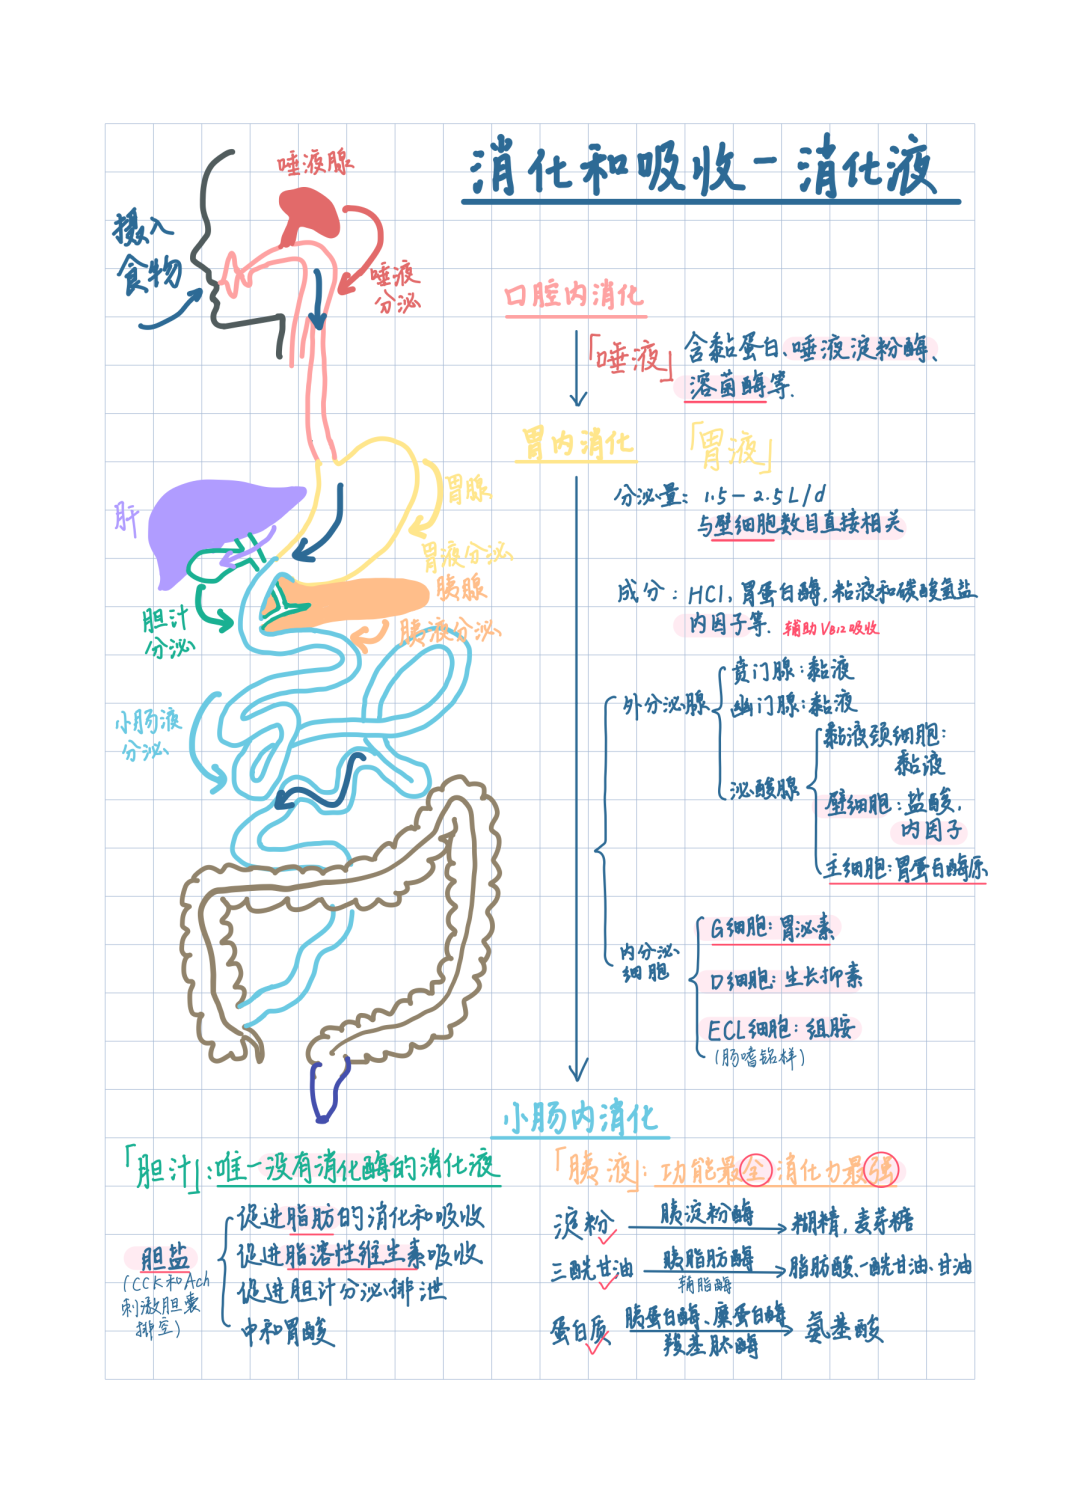 消化和吸收-消化液
唾液腺
摄入
食物
唾液
分泌
口腔内消化
「唾液」
含黏蛋白、唾液淀粉酶、
溶菌酶等.
胃内消化
「胃液」
胃腺
分泌量: 1.5-2.5L/d
与壁细胞数目直接相关
肝
胃液分泌
胰腺
胰液分泌
胆汁
分泌
成分: HCl, 胃蛋白酶, 粘液和碳酸氢盐
内因子等. 辅助VB12吸收
小肠液
分泌
外分泌腺
贲门腺:黏液
幽门腺:黏液
泌酸腺
黏液颈细胞:
黏液
壁细胞:盐酸,
内因子
主细胞:胃蛋白酶原
内分泌
细胞
G细胞: 胃泌素
D细胞: 生长抑素
ECL细胞: 组胺
(肠嗜铬样)
小肠内消化
「胆汁」:唯一没有消化酶的消化液
胆盐
(CCK和Ach
刺激胆囊
排空)
促进脂肪的消化和吸收
促进脂溶性维生素吸收
促进胆汁分泌排泄
中和胃酸
「胰液」: 功能最全 消化力最强
淀粉 胰淀粉酶 糊精, 麦芽糖
三酰甘油 胰脂肪酶 脂肪酸、一酰甘油、甘油
辅脂酶
蛋白质 胰蛋白酶、糜蛋白酶 氨基酸
羧基肽酶